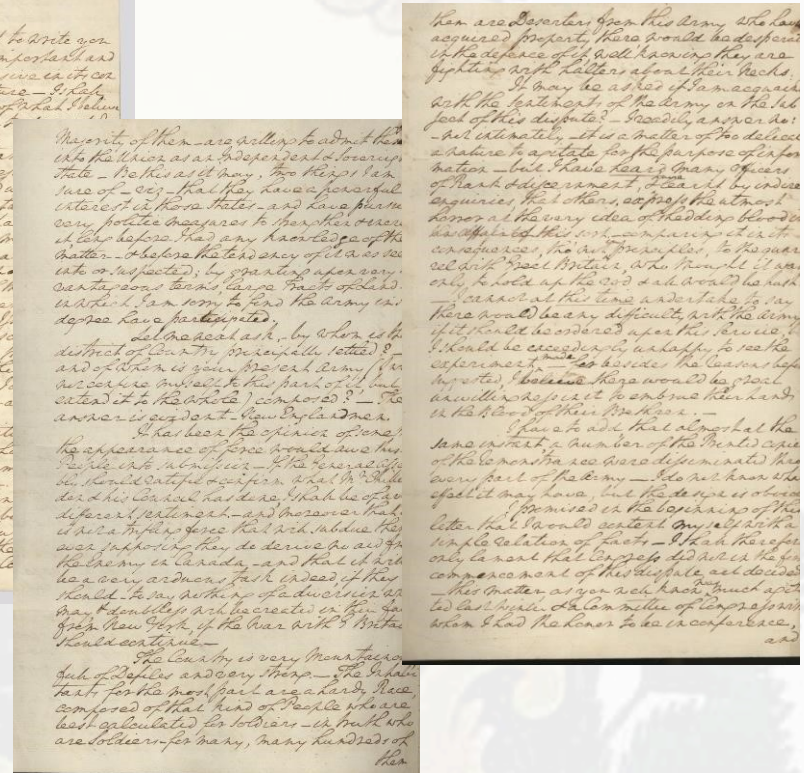 to write you
important and
sive in its con
I shall
of what I believe
Majority of them – are willing to admit them
into the Union as an Independent & Sovereign
State – Be this as it may, two things I am
sure of – viz – that they have a powerful
interest in those States – and have pursu
very politic measures to strengthen & incre
it long before I had any knowledge of the
matter – & before the tendency of it was see
into or suspected; by granting upon very
vantageous terms, large Tracts of Land
in which I am sorry to find the Army in s
degree have participated.
Let me next ask, – by whom is th
district of Country principally settled? –
and of whom is your present Army (I w
not confine myself to this part of it, but
extend it to the whole) composed? – The
answer is evident – New England men.
It has been the opinion of some
the appearance of force would awe this
People into submission – If the General Ass
bly should ratify & confirm what Mr Chitte
den & his Council has done, I shall be of a v
different sentiment – and moreover that
is not a trifling force that will subdue them
even supposing they do derive no aid fr
the Enemy in Canada, – and that it will
be a very arduous task indeed if they
should – to say nothing of a diversion wh
may & doubtless will be created in their fav
from New York, if the War with G Britai
should continue. –
The Country is very Mountainou
full of Defiles and very strong. – The Inhabi
tants for the most part are a hardy Race,
composed of that kind of People who are
best calculated for Soldiers – in truth who
are Soldiers – for many, many hundreds of
them
them are Deserters from this Army who have
acquired property, there would be desperat
in the defence of it well knowing they are
fighting with halters about their Necks.
It may be asked if I am acquain
with the Sentiments of the Army on the Sub
ject of this dispute? – I readily answer no:
– not intimately – it is a matter of too delicat
a nature to agitate for the purpose of infor
mation – but I have heard many Officers
of Rank & discernment, & learnt by indire
enquiries, that others, express the utmost
horror at the very idea of shedding blood in
an affair of this sort – comparing it in its
consequences, tho' not principles, to the quarr
rel with Great Britain, who thought it was
only to hold up the rod & all would be hush
– I cannot at this time undertake to say
there would be any difficulty with the Army
if it should be ordered upon this Service, b
I should be exceedingly unhappy to see the
experiment made – For besides the reasons befo
suggested, I believe there would be great
unwillingness in it to embrue their hands
in the Blood of their Brethren. –
I have to add that almost at the
same instant a number of the Printed copie
of the remonstrance were disseminated thro
every part of the Army – I do not know wha
effect it may have, but the design is obviou
I promised in the beginning of this
letter that I would content myself with a
simple relation of facts – I shall therefore
only lament that Congress did not in the
commencement of this dispute act decided
– this matter, as you well know, was much agita
ted last Winter & a Committee of Congress with
whom I had the honor to be in conference,
and